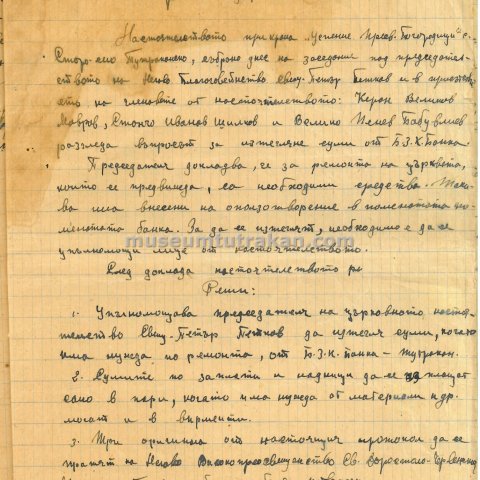 Настоятелството при храма „Успение Пресв. Богородици“ с.
Старо-село Тутраканско, събрано днес на заседание под председател-
ството на Негово Благоговейнство Свещ. Петър Петков и в присъствие-
то на членовете от настоятелството: Керан Великов
Мавров, Стойчо Иванов Щилков и Велико Пенев
разгледа въпросът за изтегляне суми от Б.З.К. банка
Председателя докладва, че за ремонта на църквата,
който се предвижда, са необходими средства. Така-
ва има внесени на оползотворение в поменатата по-
менатата банка. За да се изтеглят, необходимо е да се
упълномощи лице от настоятелството.
museumtutrakan.com
След доклада настоятелството
Реши:
1. Упълномощава председателя на църковното настоя-
телство Свещ. Петър Петков да изтегля суми, когато
има нужда, по ремонта, от Б.З.К. банка – Тутракан.
2. Сумите по заплати и надници да се изплащат
само в пари, когато има нужда от материали и др.
могат и в
3. Три оригинала от настоящия протокол да се
пратят на Негово Високопреосвещенство Св. Доростоло-Червенски